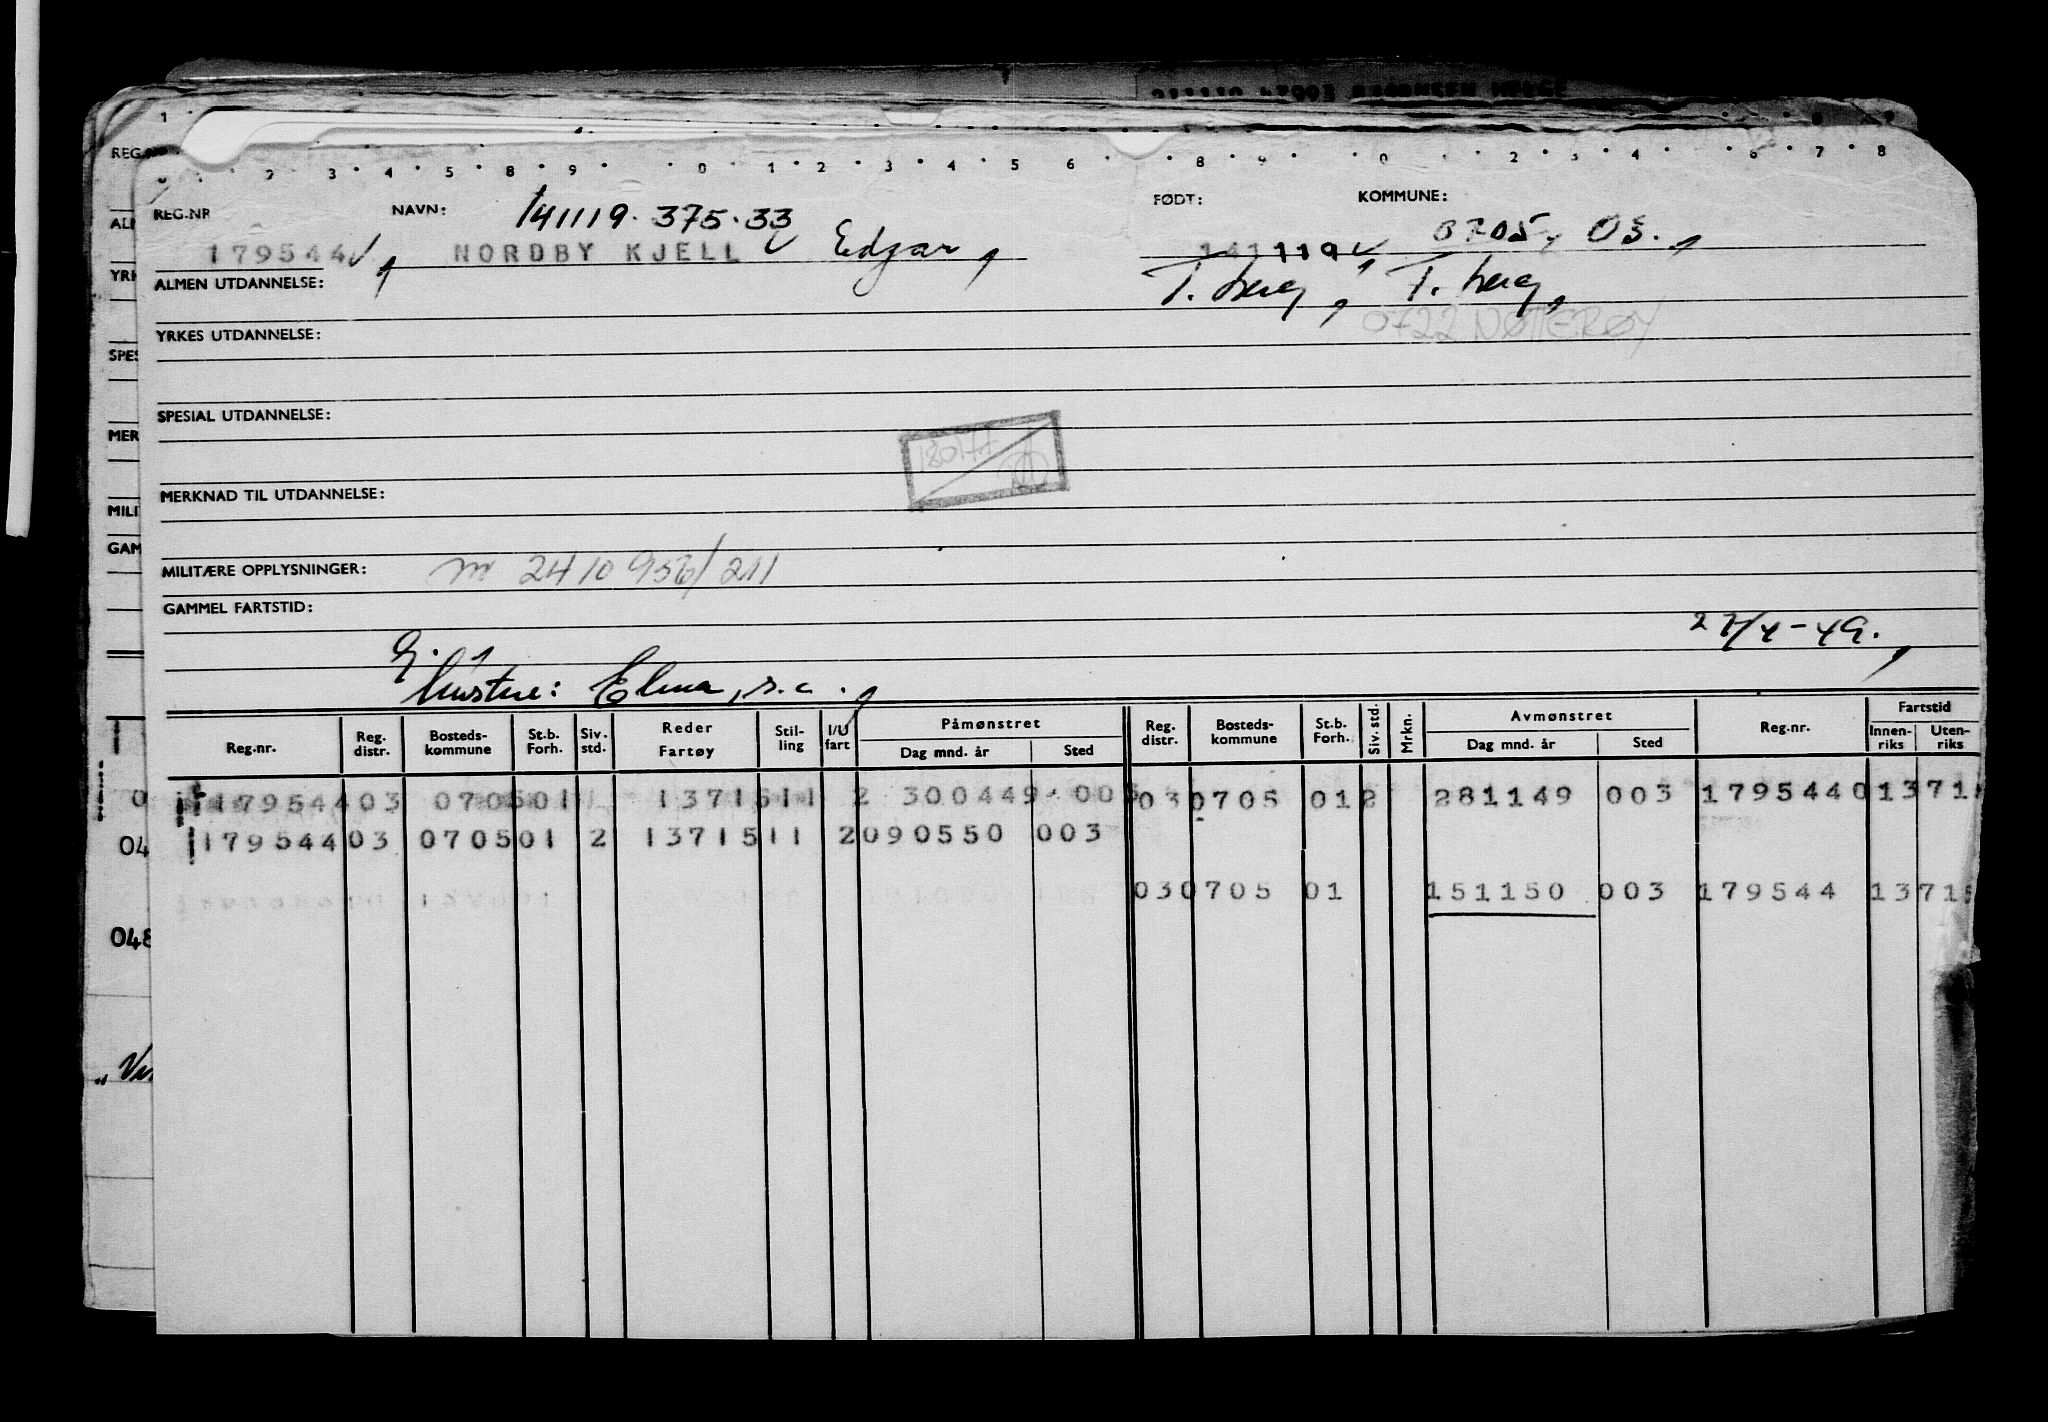 REG.NR NAVN: 141119.375.33 FØDT: KOMMUNE:
179544 NORDBY KJELL Edgar 141119 0705, 03.
ALMEN UTDANNELSE: T.berg, T.berg,
YRKES UTDANNELSE: 0722 NØTTERØY
SPESIAL UTDANNELSE:
MERKNAD TIL UTDANNELSE:
MILITÆRE OPPLYSNINGER: 2410956/211
GAMMEL FARTSTID:
27/4-49.
G.
Hustru: Elma, s.a.
Reg.nr. Reg. distr. Bosteds-kommune St.b. Forh. Siv. std. Reder Fartøy Stil-ling I/U fart Påmønstret Dag mnd. år Sted Reg. distr. Bosteds-kommune St.b. Forh. Siv. std. Mrkn. Avmønstret Dag mnd. år Sted Reg.nr. Fartstid Innen-riks Uten-riks
179544 03 0705 01 13715 11 2 300449 003 03 0705 01 2 281149 003 179544 0 1371
179544 03 0705 01 2 13715 11 2 090550 003
03 0705 01 151150 003 179544 13715